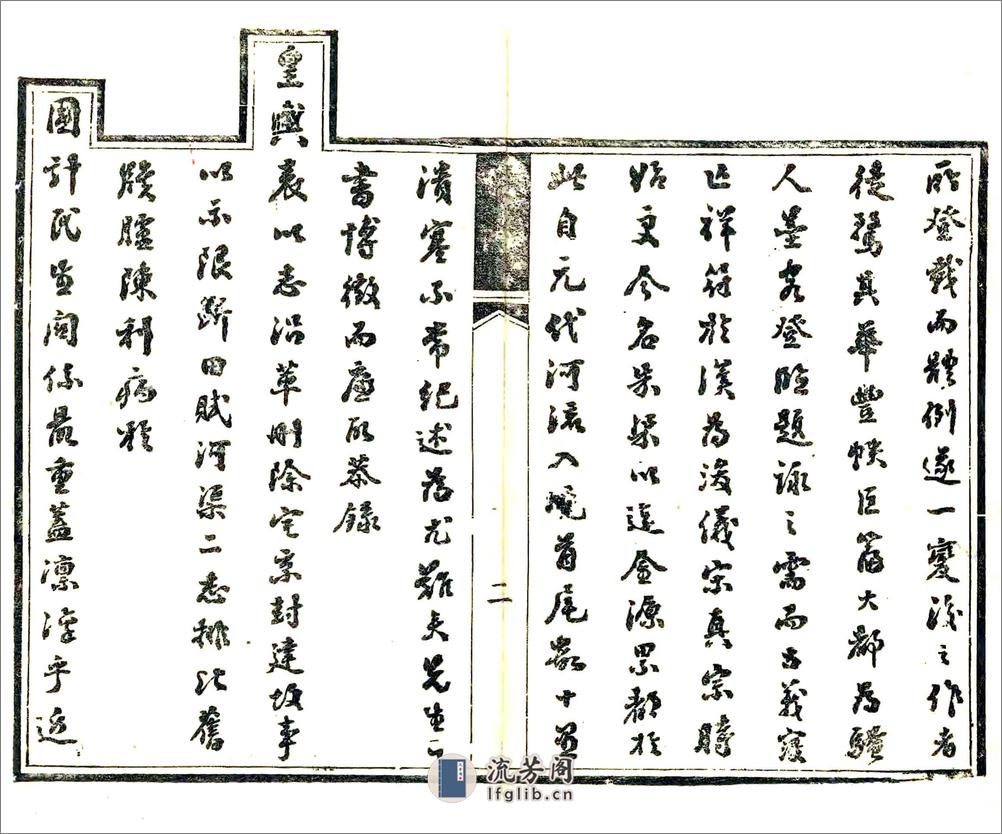 所登載而體例遂一變後之作者
徒騖其華豐帙巨籍大都為騷
人墨客登臨題詠之需而古義寖
亡祥符於漢為浚儀宋真宗時
始更今名吳渠以達金源累都於
此自元代河流入境首尾 十
潰塞不常紀述為尤難矣先生 
書博徵而慎取恭錄
皇輿表以志沿革刪除宅京封建故事
以示限斷田賦河渠二志排比舊
牘臚陳利病於
國計民生關係最重蓋凜凜乎近
二
流芳阁
lfglib.cn